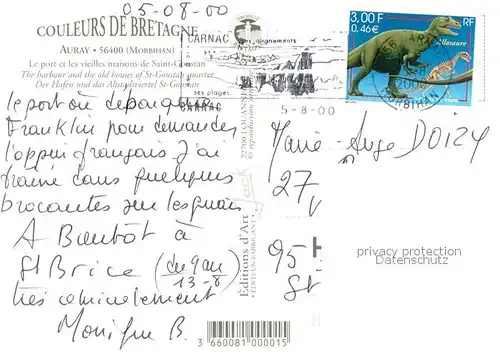 05-08-00
COULEURS DE BRETAGNE
AURAY • 56400 (MORBIHAN)
Le port et les vieilles maisons de Saint-Goustan
The harbour and the old houses of St-Goustan quarter
Der Hafen und das Altstadtviertel St-Goustan
CARNAC
ses alignements
ses plages
CARNAC
5-8-00
3,00 F
0,46 €
RF
MORBIHAN
le port ou débarqua
Franklin pour demander
l'appui français J'ai
trainé dans quelques
brocantes sur les quais
A Bientôt à
St Brice (du 9 au
13-8)
très amicalement
Monique B.
Editions d'Art
Jack
3 660081 000015
Marie-Ange DOIZY
27
95
St
privacy protection
Datenschutz